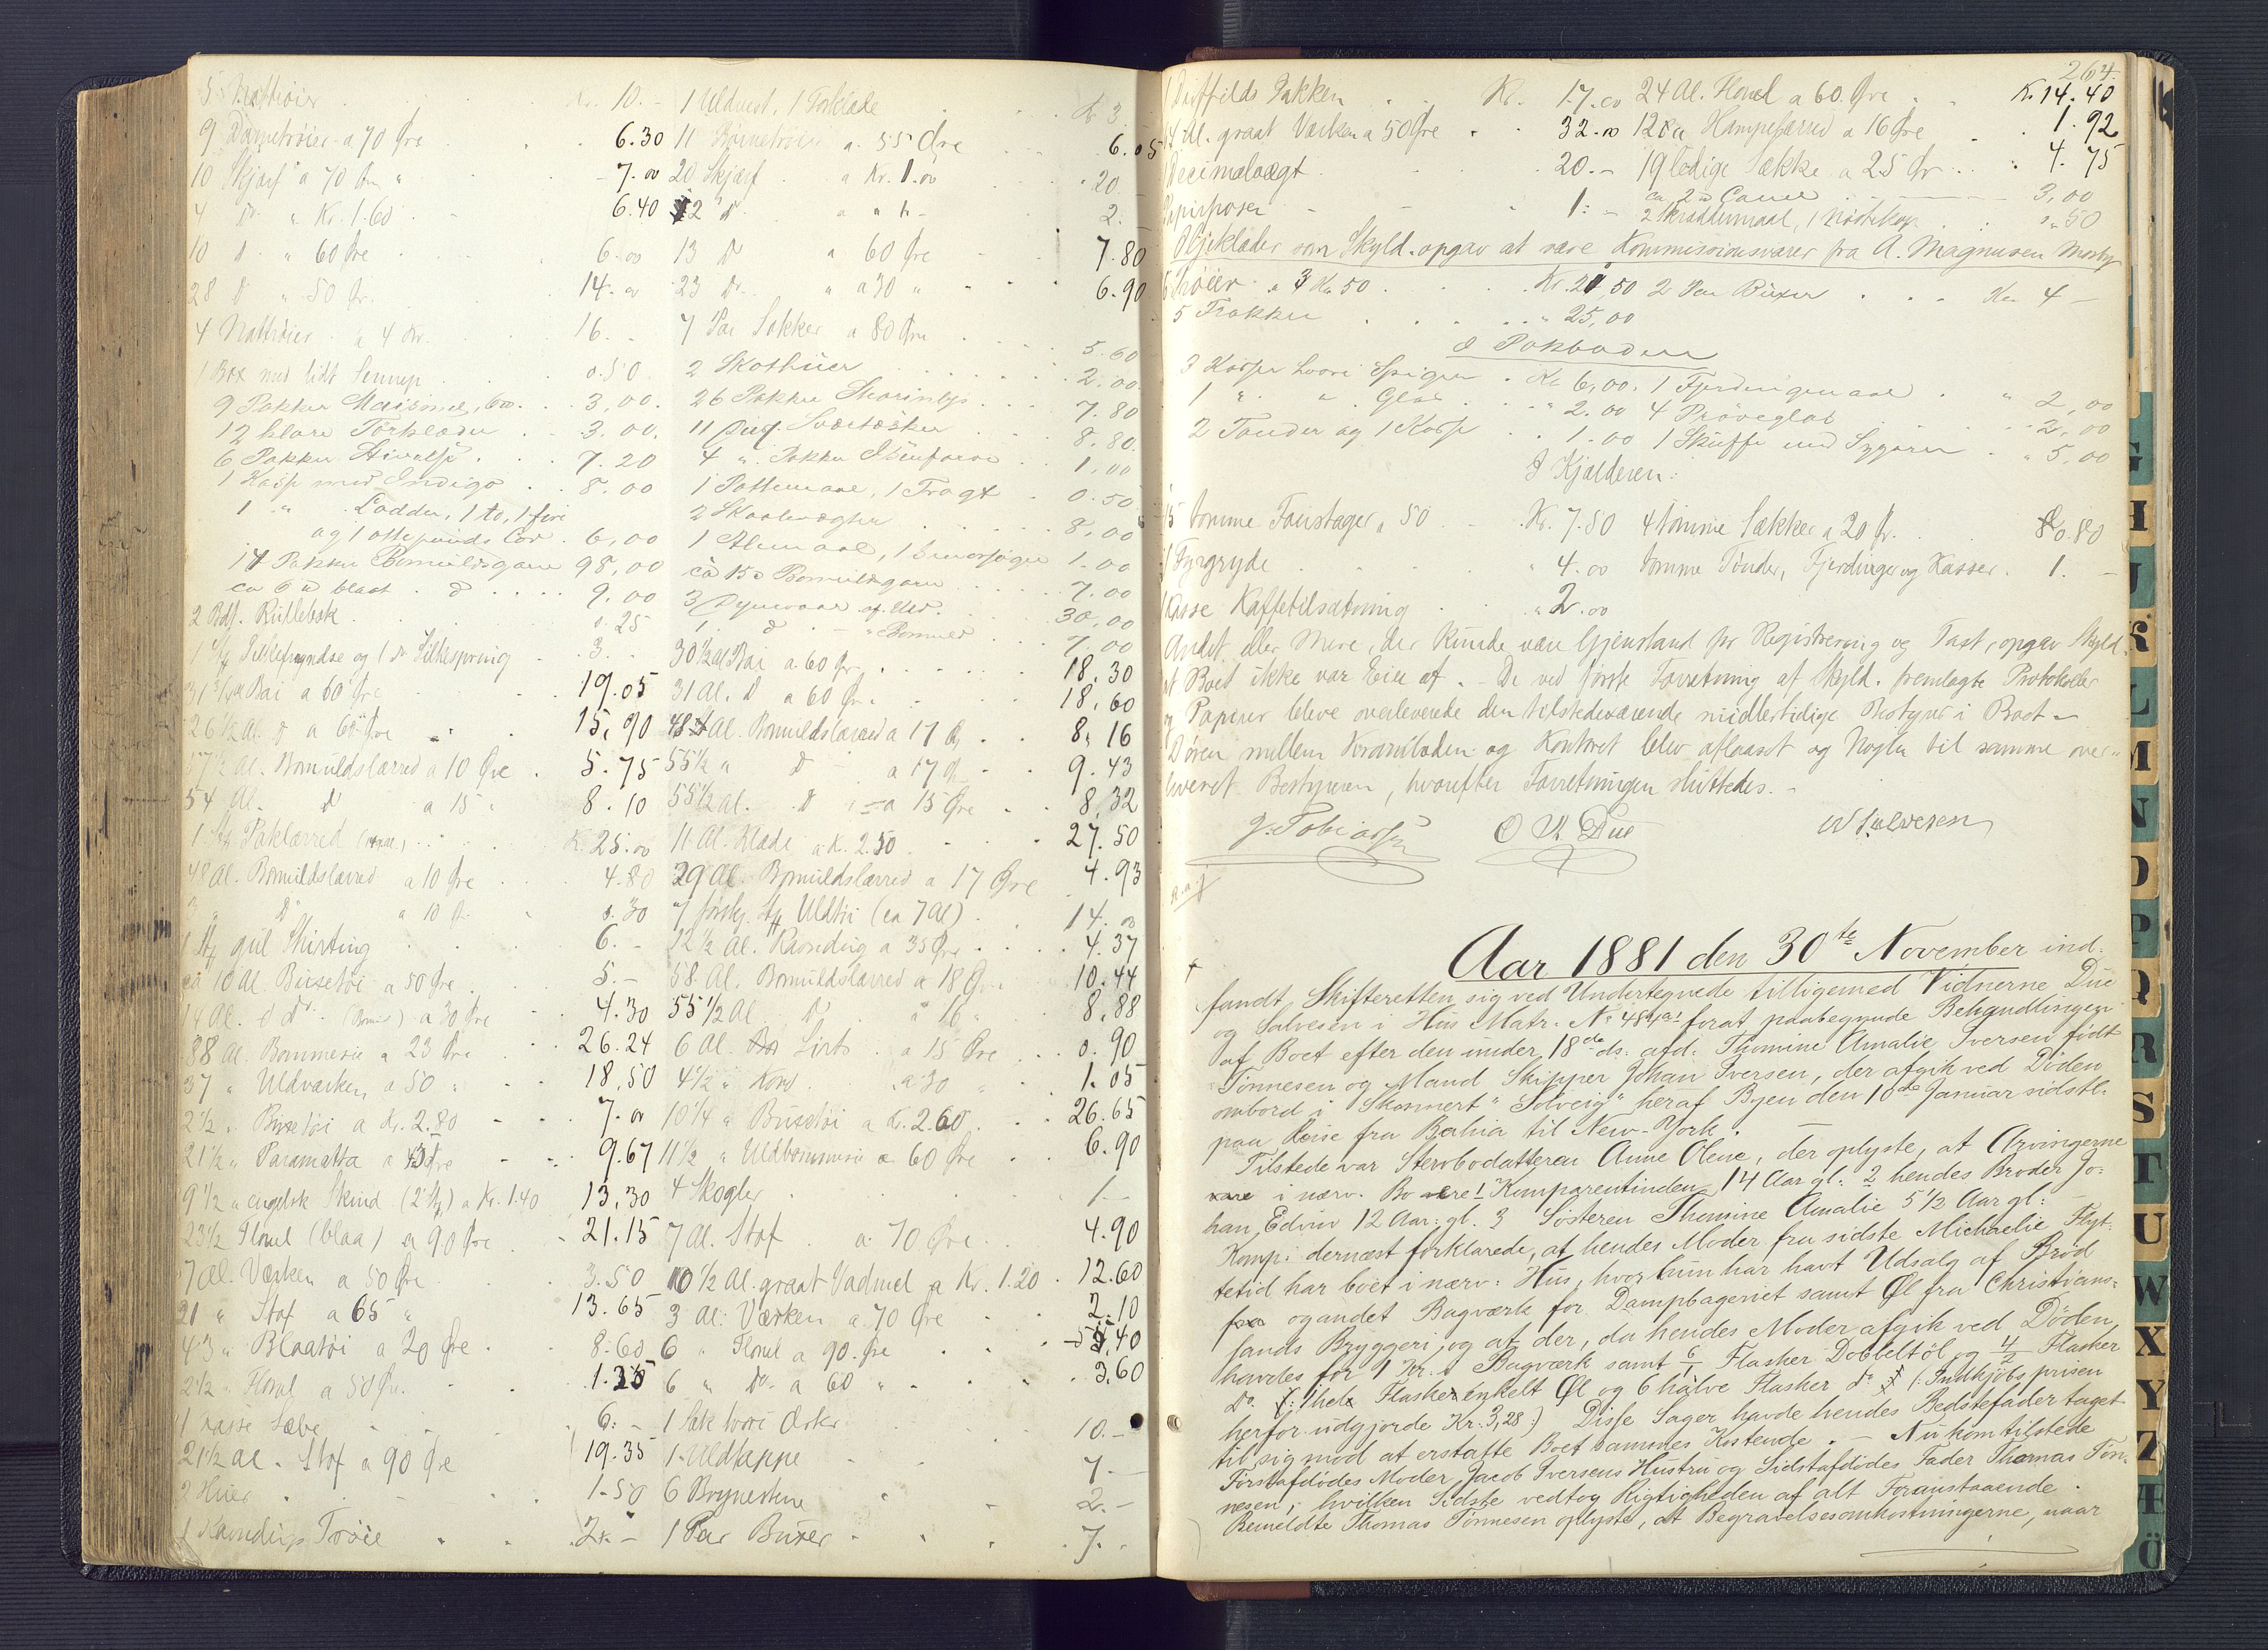 5 Nattrøier . . Kr. 10.-
9 Dametrøier a 70 Øre . . 6.30
10 Skjærf a 70 Øre " . . 7.00
4 Do " Kr. 1.60 . . 6.40
10 D " 60 Øre . . 6.00
28 D " 50 Ør. . . 14.00
4 Nattrøier a 4 Kr. . . 16.
1 Box med lidt Sennep . . 0.50
9 Pakker Maizena, . . 3,00.
12 klare Tørklæder . . 3.00.
6 Pakker Stivelse . . 7.20
1 Kasse med Indigo . . 8.00
1 " Lodder, 1 to, 1 fire
og 1 otte punds Lod . 6,00
14 Pakker Bomuldsgarn 98,00
ca 6 blaat . D . . 9.00
2 Bdt. . . 0.25
1 St. Silkefryndse og 1 Do Silkespring . 3.
Bai a 60 Øre . . 19.05
26 1/2 Al. D a 60 Øre . . 15,90
57 1/2 Al. Bomuldslærred a 10 Øre . 5.75
54 Al. D a 15 " 8.10
1 St. Paklærred . . K. 25.00
48 Al. Bomuldslærred a 10 Øre . . 4.80
3 " D a 10 Ø. . 0.30
1 St. gul Shirting . . 6.-
ca 10 Al. Buxetøi a 50 Øre . 5.-
14 Al. d Do (Bomuld) a 30 Øre 4.30
88 Al. Bommesie a 23 Øre . . 26.24
37 " Uldværken a 50 " . 18,50
2 1/2 " Buxetøi a Kr. 2.80 . . 7.00
21 1/2 " Paramatta a 45 Øre . . 9.67
9 1/2 " engelsk Skind (2 St.) a Kr. 1.40 13,30
23 1/2 Flonel (blaa) a 90 Øre . . 21.15
7 Al. Værken a 50 Øre . . 3.50
21 " Stof a 65 " 13.65
43 " Blaatøi a 20 Øre . 8.60
2 1/2 " Flonel a 50 Øre . . 1.25
1 Kasse Sæbe . . 6.-
21 1/2 al. Stof a 90 Øre 19.35
2 Huer . . 1.50
1 Kamdugs Trøie . . 2.-
1 Uldvest, 1 Forklæde . . Kr 3.
11 Børnetrøier a 55 Øre . . 6.05
20 Skjærf a Kr. 1.00 . . 20.-
2 D a a Kr - 2.
13 D a 60 Øre . 7.80
23 Do " a 30 " . . 6.90
7 Par Sokker a 80 Øre . . 5.60
2 Skothuer . . 2.00
26 Pakker Stearinlys . . 7.80
11 Dus. Sværtæsker . . 8.80
4 " Pakker . . 1,00
1 Pottemaal, 1 Tragt . 0.50
2 Skaalvægter . . 8,00
1 Alenmaal, 1 Smørsøger 1.00
ca 15 Bomuldsgarn 7.00
3 Dynevaar af Uld. . 30,00
1 D - " Bomuld . . 7.00
30 1/2 al Bai a 60 Ør. . . 18.30
31 Al. D a 60 Ør. . 18.60
48 Al. Bomuldslærred a 17 Ø. . 8.16
55 1/2 " D a 17 Ø. . 9.43
55 1/2 Al. D " a 15 Øre . 8,32
11 Al. Klæde a K. 2.50 . . 27.50
29 Al. Bomuldslærred a 17 Øre 4.93
7 forskj. St. Uldtøi (ca 7 Al) . 14.00
12 1/2 Al. Kamdug a 35 Øre . . 4.37
58 Al. Bomuldslærred a 18 Øre 10.44
55 1/2 Al D a 16 " . 8.88
6 Al. Sirts . a 15 Øre . . 0.90
4 1/2 " Kord . a 30 " 1.05
10 1/4 " Buxetøi a Kr. 2.60 . . 26.65
11 1/2 " Uldbommesie a 60 Øre . 6.90
4 Skogler . . 1-
7 Al. Stof a 70 Øre . . 4.90
10 1/2 Al. graat Vadmel a Kr. 1.20 . 12.60
3 Al: Værken a 70 Øre . 2.10
6 " Flonel a 90. Øre . . 5.40
6 " Do. a 60 " . . 3.60
1 Sæk Erter . . 10.-
1 Uldkappe . . 7.-
6 Brynestene . . 2.-
1 Par Buxer . . 7.
264.
1 Duffilds Jakken . . Kr. 17.00 24 Al. Flonel a 60. Øre . . K. 14.40
64 Al. graat Værken a 50 Øre . . 32.00 12 Al Hampelærred a 16 Øre . . 1.92
1 Decimalvægt . . 20.- 19 ledige Sække a 25 Ør . . 4.75
ca 2 Canel . . 3,00
Papirposer . . 1:- 2 Skræddermaal, 1 . . ".50
Gjeklæder som Skyld. opgav at være Kommissionsvarer fra A. Magnusen Mosby
6 Trøier a 3 Kr 50 . . Kr. 21,50 2 Par Buxer . . . Kr 4 -
5 Frakker . . . " 25,00
I Pakboden
3 Kasser Spiger . Kr 6,00. 1 Fjerdingmaal . " 2,00
1 " " Glas . . " 2.00 4 Prøveglas . . 2,00
2 Tønder og 1 Kasse . . 1.00 1 Skuffe med Sygarn . " 5,00
I Kjælderen:
15 tomme Foustager a 50 . . Kr. 7.50 4 tomme Sækker a 20 Ør. . 0.80
1 Fyrgryde . . " 4.00 tomme Tønder, Fjerdinger og Kasser . 1.-
1 Kasse Kaffetilsætning . . " 2.00
Andet eller mere, der kunde være Gjenstand for Registrering og Taxt, opgav Skyld.
at Boet ikke var Eier af. - De ved første Forretning af Skyld. fremlagte Protokoller
og Papirer bleve overleverede den tilstedeværende midlertidige Bestyrer i Boet -
Døren mellem Kramboden og Kontoret blev aflaaset og Nøglen til samme over-
leveret Bestyreren, hvorefter Forretningen sluttedes. -
J. Tobiassen O N Due W Salvesen
Aar 1881 den 30te November ind-
fandt Skifteretten sig ved Undertegnede tilligemed Vidnerne Due
og Salvesen i Hus Matr. No 484a1 forat paabegynde Behandlingen
af Boet efter den under 18de ds. afd. Thomine Amalie Iversen født
Tønnesen og Mand Skipper Johan Iversen, der afgik ved Døden
ombord i Skonnert "Solveig" heraf Byen den 10de Januar sidstl.
paa Reise fra Bahia til New-York. -
Tilstede var Stervbodatteren Anne Olene, der oplyste, at Arvingerne
i nærv. Bo vare 1 Komparentinden 14 Aar gl: 2 hendes Broder Jo-
han Edvin 12 Aar: gl. 3 Søsteren Thomine Amalie 5 1/2 Aar gl: -
Komp: dernæst forklarede, at hendes Moder fra sidste Michaelie Flyt-
tetid har boet i nærv: Hus, hvor hun har havt Udsalg af Brød
og andet Bagværk for Dampbageriet samt Øl fra Christians-
sands Bryggeri, og at der, da hendes Moder afgik ved Døden
havdes for 1 Kr. i Bagværk samt 6/1 Flasker Dobbeltøl og 4/2 Flasker
Do. 1 hel Flaske enkelt Øl og 6 halve Flasker do (: Indkjøbsprisen
herfor udgjorde Kr: 3,28 :) Disse Sager havde hendes Bedstefader taget
til sig mod at erstatte Boet sammes Kostende. - Nu kom tilstede
Førstafdødes Moder, Jacob Iversens Hustru og Sidstafdødes Fader Thomas Tøn-
nesen, hvilken Sidste vedtog Rigtigheden af alt Foranstaaende.
Bemeldte Thomas Tønnesen oplyste, at Begravelsesomkostningerne, naar
G
H
J
K
L
M
N
O
P
Q
R
S
T
U
W
X
Y
Z
Æ
Ö